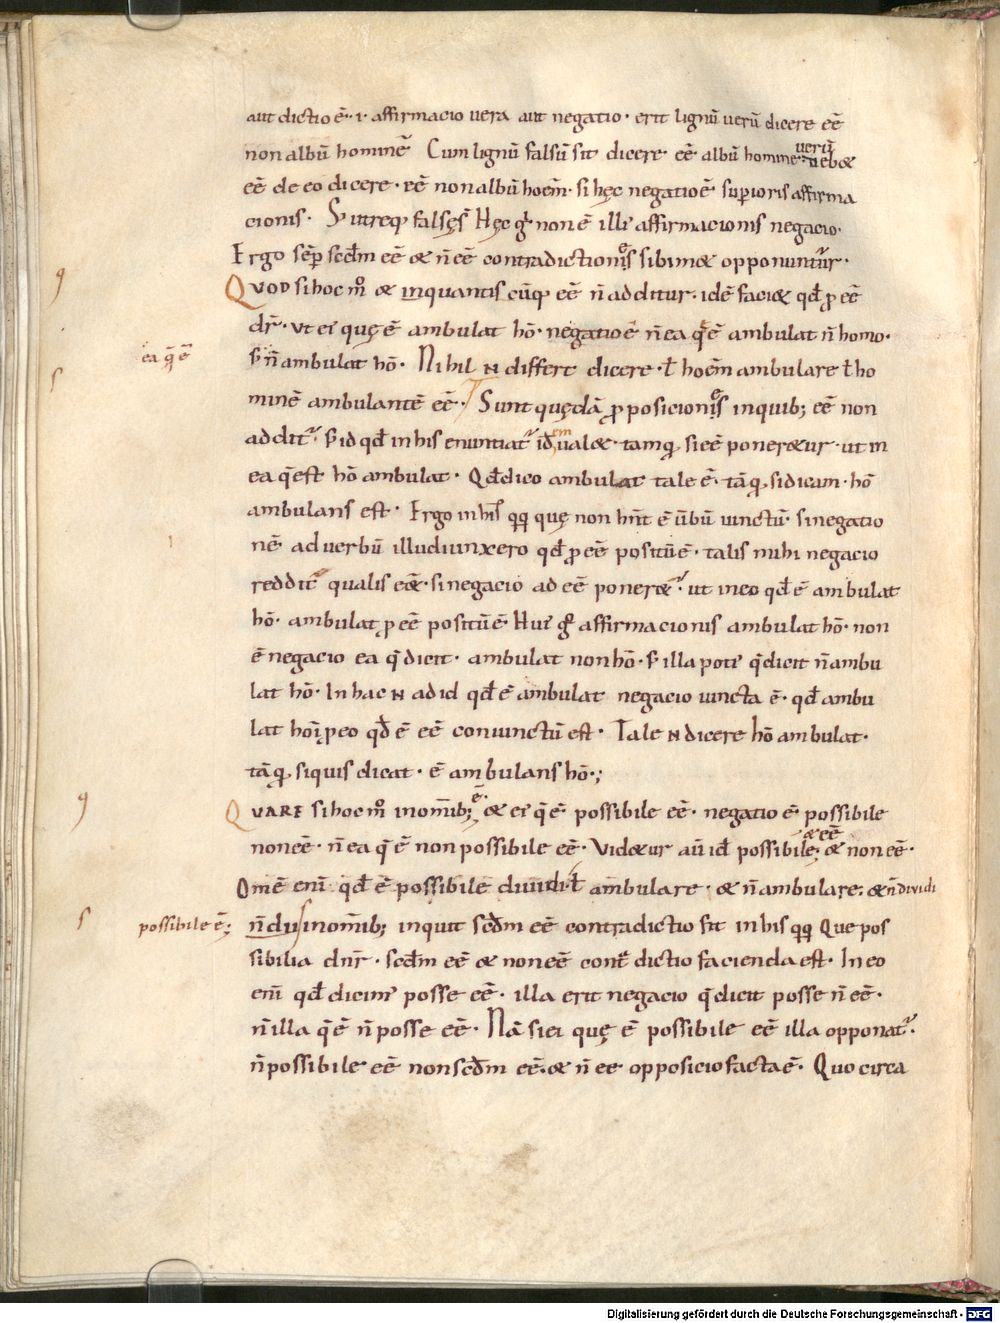 aut dictio ē · i · affirmacio vera aut negatio · erit lignū verū dicere eē
non albū hominē Cum lignū falsū sit dicere eē albū homine verū
eē de eo dicere · eē non albū hoēm · si hęc negatio ē supioris affirma
cionis · S; utreq falsęs̄ Hęc g̊ non ē illi' affirmacionis negacio ·
Ergo sēp scdm eē & n̄ eē contradictionis sibimet opponuntur ·
QVOD si hoc m̊ & inquantis cūq; eē n̄ additur · idē faciet qd̄ ꝓ eē
dr̄ · ut ei' quę ē ambulat hō · negatio ē n̄ ea q̄ ē ambulat n̄ homo ·
ea q̄ ē
s; n̄ ambulat hō · Nihil N differt dicere · ł hoēm ambulare ł ho
minē ambulantē eē · Sunt quędā ꝓposicionis inquib; eē non
additr̄ · s; id qd̄ in his enuntiatr̄ idem ualet · tamq̄ si eē poneretur · ut in
ea q̄ est hō ambulat · Qd̄ dico ambulat tale ē · tāq̄ si dicam · hō
ambulans est · Ergo in his qq̄ quę non hn̄t ē ūbū iunctū · si negatio
nē ad verbū illud iunxero qd̄ ꝓ eē positū ē · talis mihi negacio
redditr̄ qualis eēt · si negacio ad eē poneretr̄ · ut in eo qd̄ ē ambulat
hō · ambulat ꝓ eē positū ē · Hui' g̊ affirmacionis ambulat hō · non
ē negacio ea q̄ dicit · ambulat non hō · s; illa poti' q̄ dicit n̄ ambu
lat hō · In hac N ad id qd̄ ē ambulat negacio iuncta ē · qd̄ ambu
lat hoī ꝓ eo qd̄ ē eē coniunctū est · Tale N dicere hō ambulat ·
tāq̄ si quis dicat · ē ambulans hō ·;
QVARE si hoc m̊ in omīb; ē · & ei' q̄ ē possibile eē · negatio ē possibile
non eē · n̄ ea q̄ ē non possibile eē · Videtur aū id possibile; & eē & non eē ·
Omē enī qd̄ ē possibile diuidi ł ambulare · & n̄ ambulare; & n̄ dividi
possibile ē;
n̄dū in omīb; inquit scdm eē contradictio fit in his qq̄ Que pos
sibilia dn̄r · scdm eē & non eē contdictio facienda est · In eo
enī qd̄ dicim' posse eē · illa erit negacio q̄ dicit posse n̄ eē ·
n̄ illa q̄ ē n̄ posse eē · Nā si ei quę ē possibile eē illa opponatr̄ ·
n̄ possibile eē non scdm eē · & n̄ eē opposicio facta ē · Quo circa
Digitalisierung gefördert durch die Deutsche Forschungsgemeinschaft · DFG